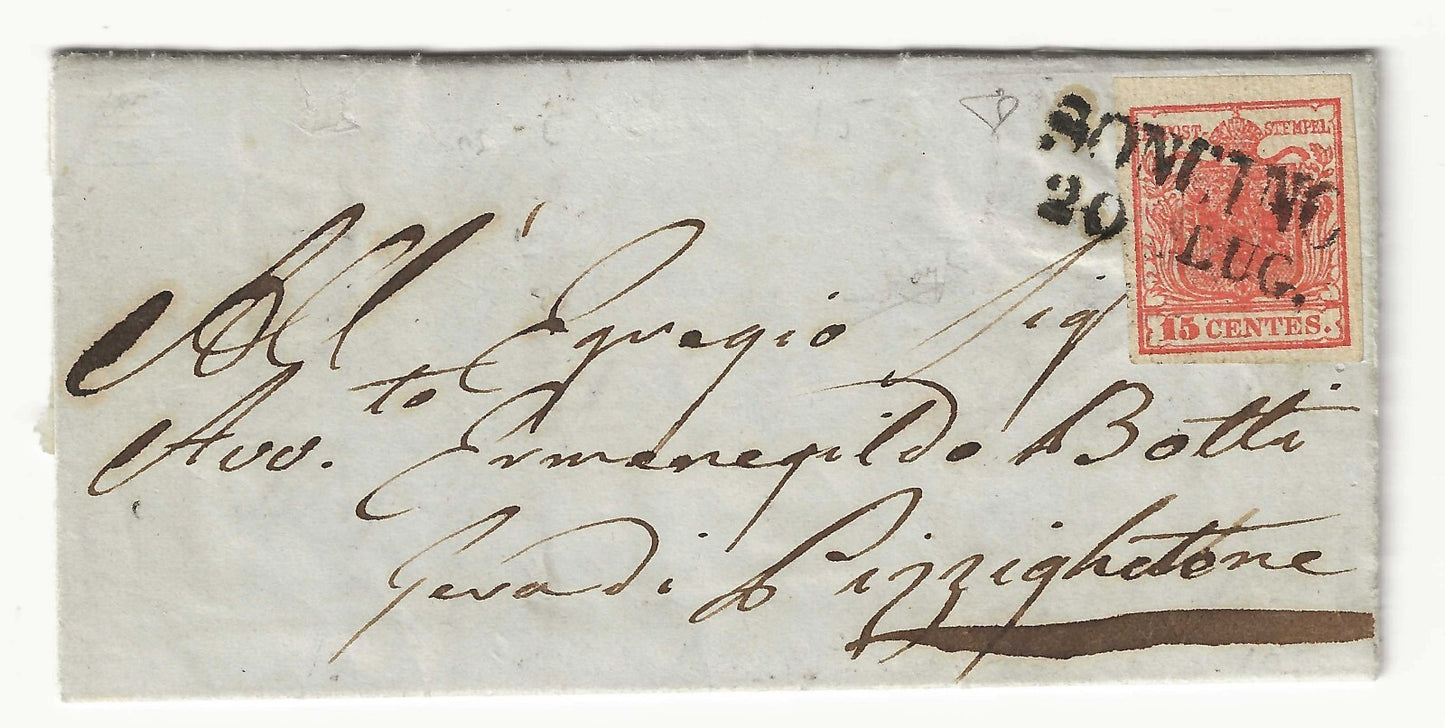 POST-STEMPEL
SONCINO
20 LUG.
15 CENTES.
All' Egregio Sig
Avv.to Ermenegildo Botti
Gera di Pizzighettone